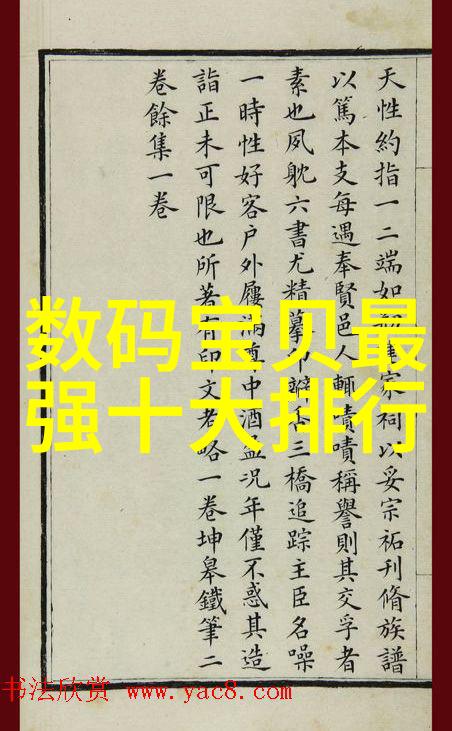 天性約指一二端如家祠以妥宗祏刊脩族譜
以篤本支每遇奉賢邑人輒嘖嘖稱譽則其交孚者
素也夙躭六書尤精摹印辯否三橋追踪主臣名噪
一時性好客户外屨滿尊中酒盈况年僅不惑其造
詣正未可限也所著有印文考略一卷坤皋鐵筆二
卷餘集一卷
数码宝贝最
强十大排行
书法欣赏 www.yac8.com